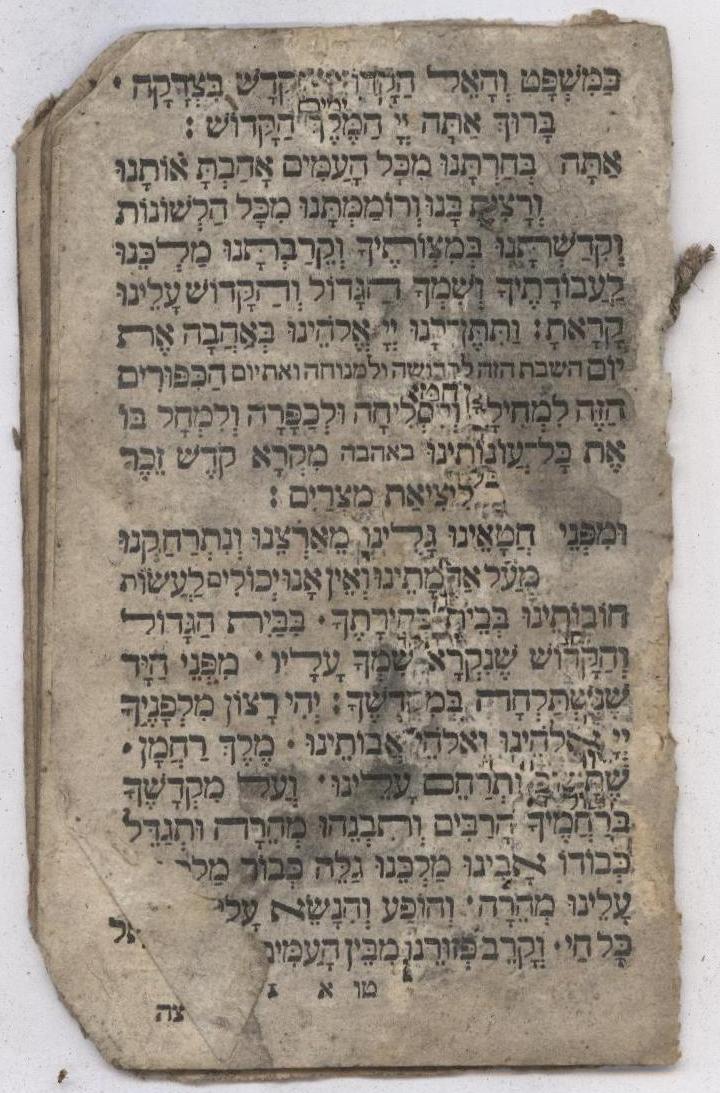 בַּמִּשְׁפָּט וְהָאֵל הַקָּדוֹשׁ נִקְדָּשׁ בִּצְדָקָה ׃
בָּרוּךְ אַתָּה יְיָ הַמֶּלֶךְ הַקָּדוֹשׁ :
אַתָּה בְחַרְתָּנוּ מִכָּל הָעַמִּים אָהַבְתָּ אוֹתָנוּ
וְרָצִיתָ בָּנוּ וְרוֹמַמְתָּנוּ מִכָּל הַלְשׁוֹנוֹת
וְקִדַּשְׁתָּנוּ בְּמִצְוֹתֶיךָ וְקֵרַבְתָּנוּ מַלְכֵּנוּ
לַעֲבוֹדָתֶיךָ וְשִׁמְךָ הַגָּדוֹל וְהַקָּדוֹשׁ עָלֵינוּ
קָרָאתָ: וַתִּתֶּן לָנוּ יְיָ אֱלֹהֵינוּ בְּאַהֲבָה אֶת
יום השבת הזה לקדושה ולמנוחה ואת יום הַכִּפּוּרִים
הַזֶּה לִמְחִילָה וְלִסְלִיחָה וּלְכַפָּרָה וְלִמְחָל בּוֹ
אֶת כָּל־עֲוֹנוֹתֵינוּ באהבה מִקְרָא קֹדֶשׁ זֵכֶר
לִיצִיאַת מִצְרַיִם :
וּמִפְּנֵי חֲטָאֵינוּ גָּלִינוּ מֵאַרְצֵנוּ וְנִתְרַחַקְנוּ
מֵעַל אַדְמָתֵינוּ וְאֵין אָנוּ יְכוֹלִים לַעֲשׂוֹת
חוֹבוֹתֵינוּ בְּבֵית בְּחִירָתֶךָ · בַּבַּיִת הַגָּדוֹל
וְהַקָּדוֹשׁ שֶׁנִּקְרָא שִׁמְךָ עָלָיו · מִפְּנֵי הַיָּד
שֶׁנִּשְׁתַּלְּחָה בְּמִקְדָּשֶׁךָ: יְהִי רָצוֹן מִלְּפָנֶיךָ
יְיָ אֱלֹהֵינוּ וֵאלֹהֵי אֲבוֹתֵינוּ · מֶלֶךְ רַחֲמָן ·
שֶׁתָּשׁוּב וּתְרַחֵם עָלֵינוּ · וְעַל מִקְדָּשֶׁךָ
בְּרַחֲמֶיךָ הָרַבִּים וְתִבְנֵהוּ מְהֵרָה וּתְגַדֵּל
כְּבוֹדוֹ אָבִינוּ מַלְכֵּנוּ גַּלֵּה כְּבוֹד
עָלֵינוּ מְהֵרָה · וְהוֹפַע וְהִנָּשֵׂא
כָּל חַי · וְקָרֵב פְּזוּרֵנוּ מִבֵּין הָעַמִּים
טו א
צה